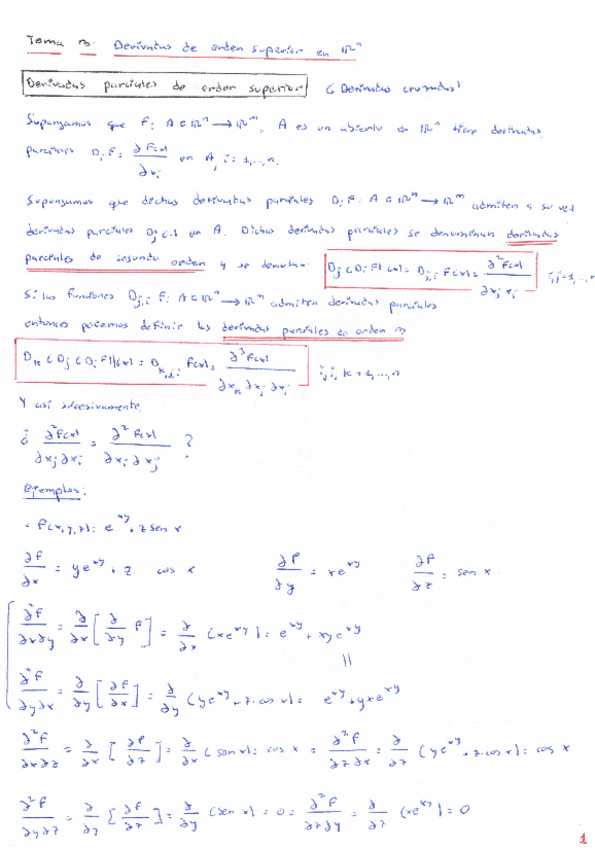 Tema 3: Derivadas de orden superior en ℝⁿ
Derivadas parciales de orden superior (Derivadas cruzadas)
Supongamos que F: A ⊂ ℝⁿ → ℝᵐ, A es un abierto en ℝⁿ tiene derivadas
parciales DᵢF = ∂F(x)/∂xᵢ en A, i = 1,...,n.
Supongamos que dichas derivadas parciales DᵢF: A ⊂ ℝⁿ → ℝᵐ admiten a su vez
derivadas parciales Dⱼ(.) en A. Dichas derivadas parciales se denominan derivadas
parciales de segundo orden y se denotan: Dⱼ(DᵢF)(x) = Dⱼ,ᵢ F(x) = ∂²F(x)/∂xⱼ ∂xᵢ i,j=1,...,n
Si las funciones Dⱼ,ᵢ F: A ⊂ ℝⁿ → ℝᵐ admiten derivadas parciales
entonces podemos definir las derivadas parciales de orden 3
Dₖ(Dⱼ(DᵢF))(x) = Dₖ,ⱼ,ᵢ F(x) = ∂³F(x)/∂xₖ ∂xⱼ ∂xᵢ i,j,k = 1,...,n
Y así sucesivamente.
¿ ∂²F(x)/∂xⱼ∂xᵢ = ∂²F(x)/∂xᵢ ∂xⱼ ?
Ejemplos:
• F(x,y,z) = e^xy + z sen x
∂F/∂x = ye^xy + z · cos x ∂F/∂y = xe^xy ∂F/∂z = sen x
∂²F/∂x∂y = ∂/∂x [∂/∂y F] = ∂/∂x (xe^xy) = e^xy + xye^xy
=
∂²F/∂y∂x = ∂/∂y [∂F/∂x] = ∂/∂y (ye^xy + z·cos x) = e^xy + yxe^xy
∂²F/∂x∂z = ∂/∂x [∂F/∂z] = ∂/∂x (sen x) = cos x = ∂²F/∂z∂x = ∂/∂z (ye^xy + z·cos x) = cos x
∂²F/∂y∂z = ∂/∂y [∂F/∂z] = ∂/∂y (sen x) = 0 = ∂²F/∂z∂y = ∂/∂z (xe^xy) = 0
1